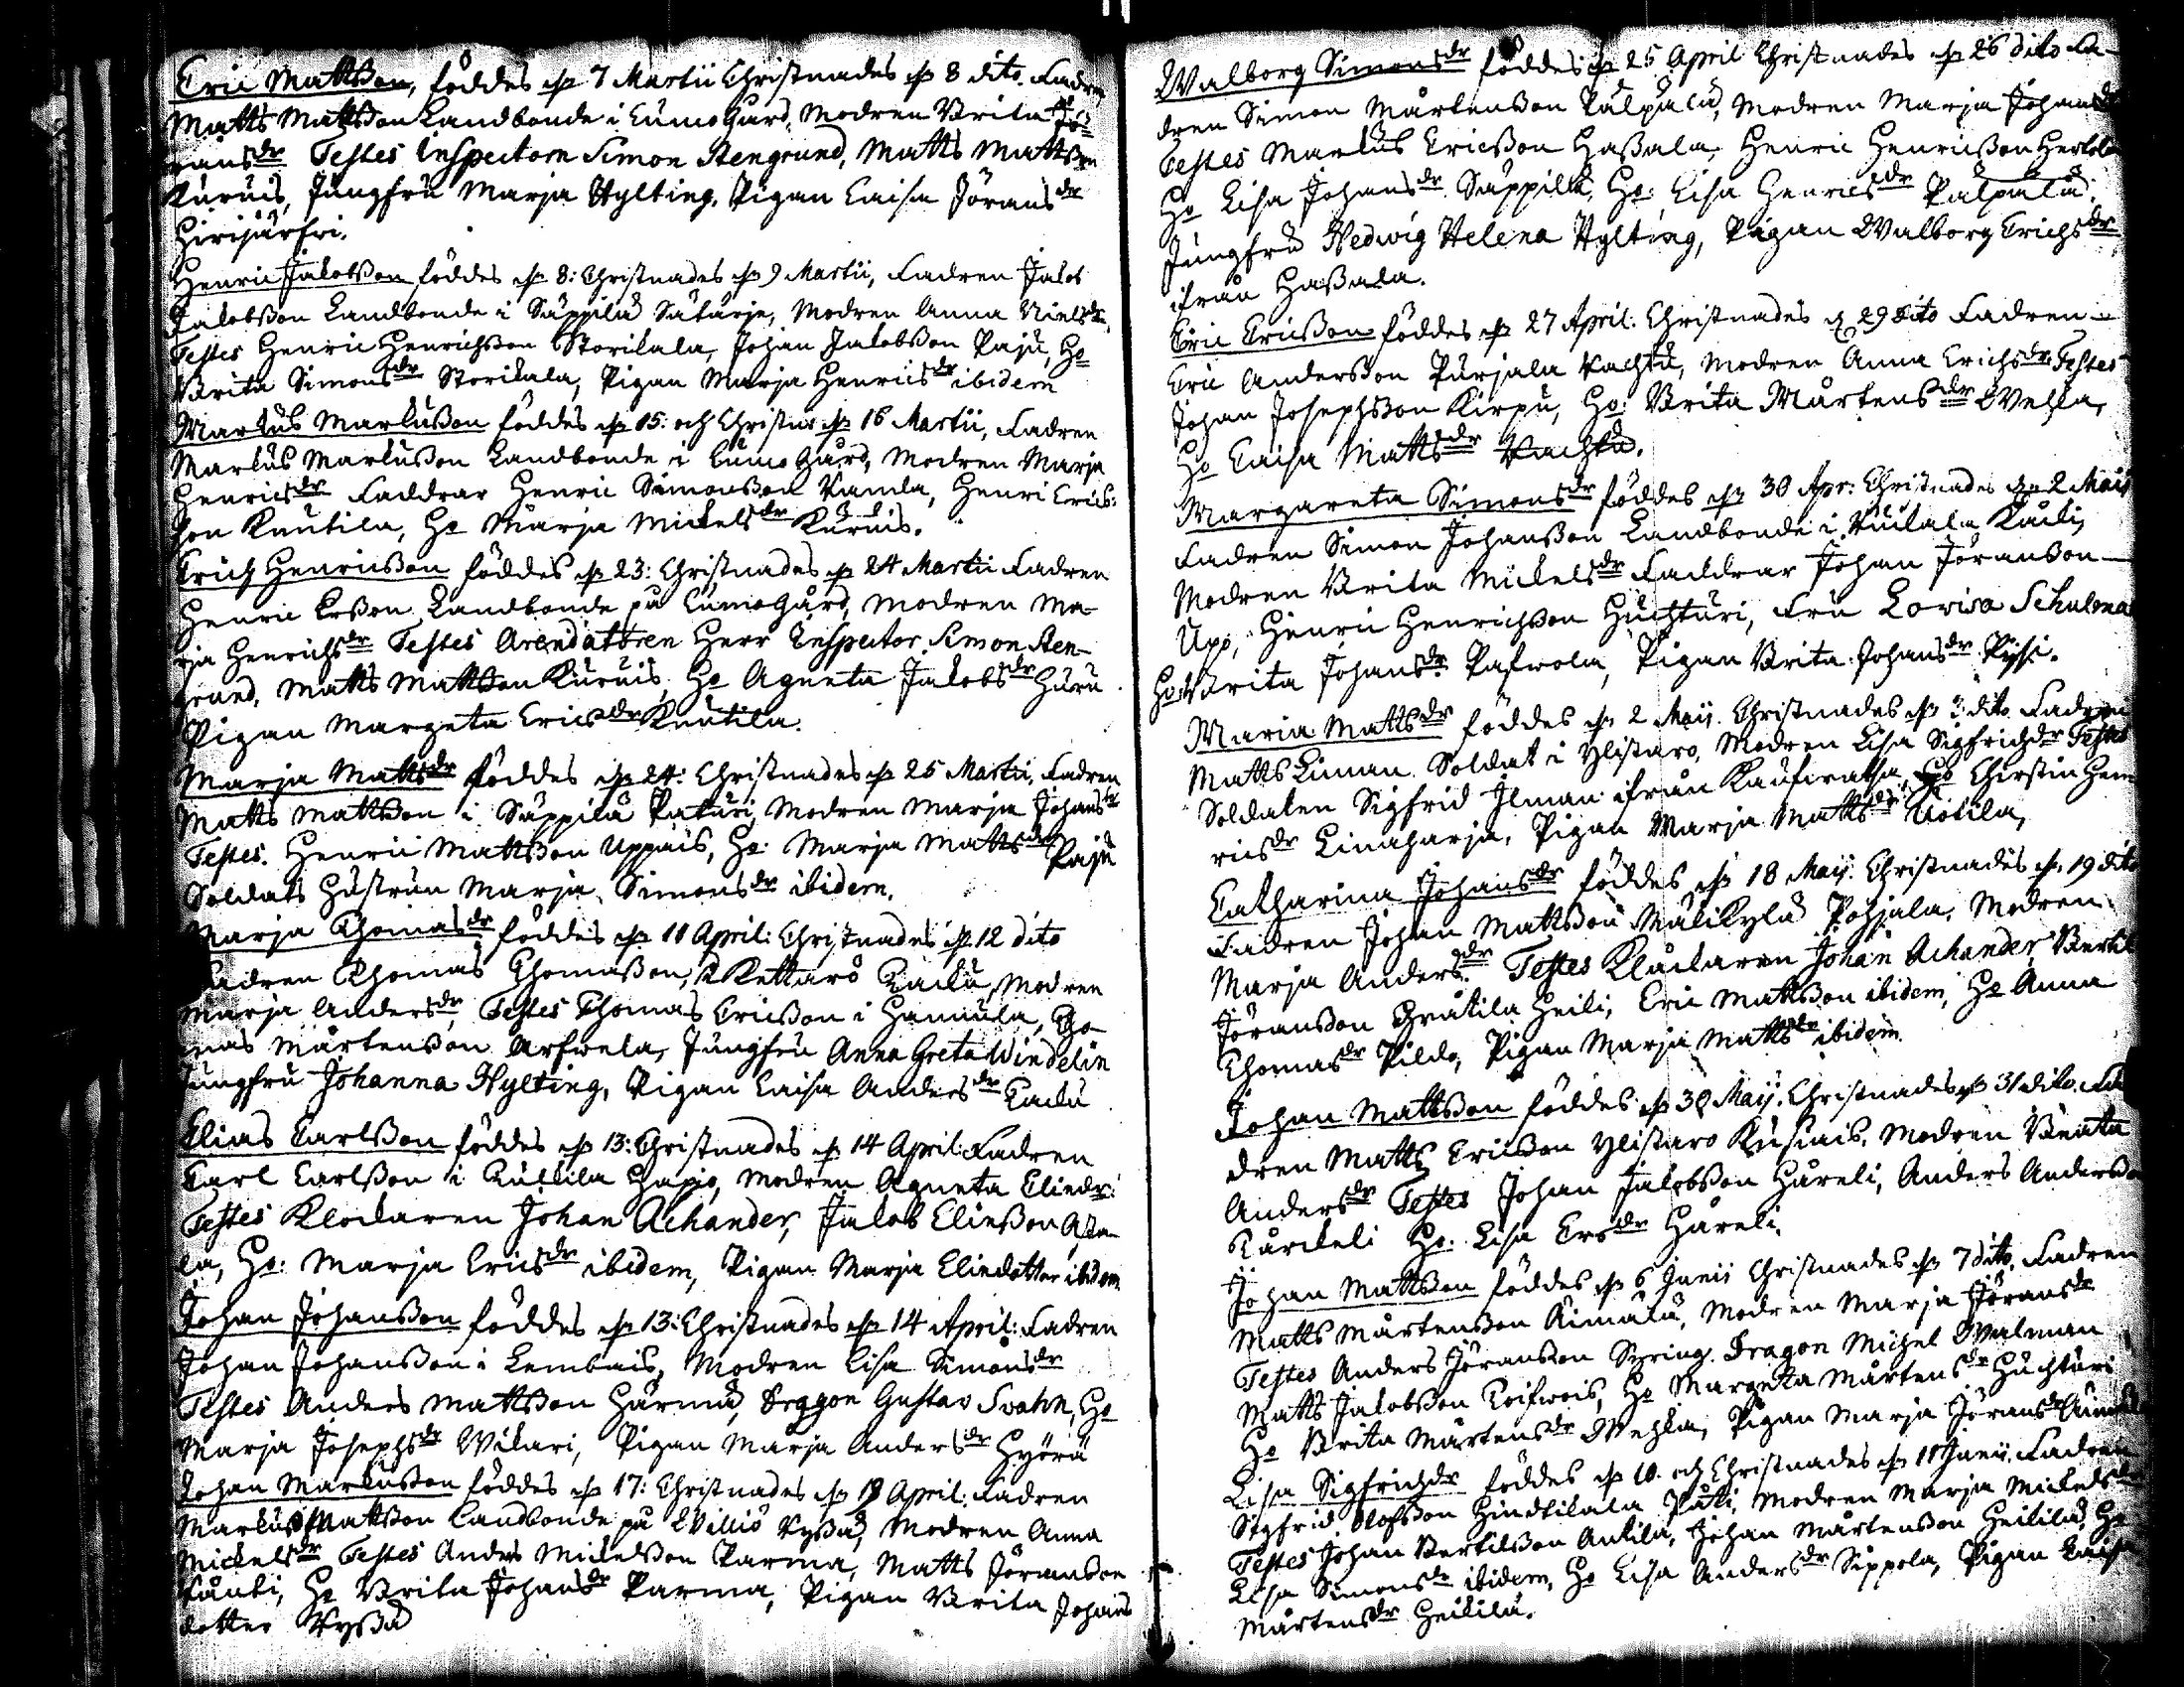 Eric Mattsson, föddes d. 7 Martii Christnades d. 8 dito. Fadren
Matts Mattsson Landbonde i Cumogård, Modren Brita Jö-
ransdr Testes Inspectorn Simon Stengrund, Matts Mattsson
Kuruis, Jungfru Marja Hylting, Pigan Caisa Jöransdr
Hirijärfvi.
Henric Jakobsson föddes d. 8: Christnades d. 9 Martii, Fadren Jakob
Jakobsson Landbonde i Säppilä Satarje, Modren Anna Nielsdr
Testes Henric Henrichsson Storikala, Johan Jakobsson Paju, Ho
Brita Simonsdr Storikala, Pigan Marja Henricsdr ibidem
Markus Markusson föddes d. 15: och Christnas d. 16 Martii, Fadren
Markus Markusson Landbonde i Cumogård, Modren Marja
Henricsdr Faddrar Henric Simonsson Kamla, Henric Erics-
son Knutila, Ho Marja Mickelsdr Kuruis.
Erich Henricsson föddes d. 23: Christnades d. 24 Martii Fadren
Henric Ersson Landbonde på Cumogård, Modren Ma-
rja Henrichsdr Testes Arendatoren Herr Inspector Simon Sten-
grund, Matts Mattsson Kuruis, Ho Agneta Jakobsdr Huru
Pigan Margeta Ericsdr Knutila.
Marja Mattsdr föddes d. 24: Christnades d. 25 Martii, Fadren
Matts Mattsson i Säppilä Paturi, Modren Marja Johansdr
Testes. Henric Mattsson Uppais, Ho: Marja Mattsdr Paju
Soldats Hustrun Marja Simonsdr ibidem.
Marja Thomasdr föddes d. 11 April: Christnades d. 12 dito
Fadren Thomas Thomasson, Kettaro Kacku, Modren
Marja Andersdr, Testes Thomas Ericsson i Hannula, Tho-
mas Mårtensson Arfwela, Jungfru Anna Greta Windelin
Jungfru Johanna Hylting, Pigan Caisa Andersdr Kacku
Elias Carlsson föddes d. 13: Christnades d. 14 April: Fadren
Carl Carlsson i Kulkila Hapio, Modren Agneta Eliedr:
Testes Klockaren Johan Achander, Jakob Eliesson Asta-
la, Ho: Marja Ericsdr ibidem, Pigan Marja Eliedotter ibidem
Johan Johansson föddes d. 13: Christnades d. 14 April: Fadren
Johan Johansson i Lembais, Modren Lisa Simonsdr
Testes Anders Mattsson Härmä, Dragon Gustav Svahn, Ho
Marja Josephsdr Wikari, Pigan Marja Andersdr Hyörä
Johan Markusson föddes d. 17: Christnades d. 18 April: Fadren
Markus Mattsson Landbonde på Willio Kyssä, Modren Anna
Mickelsdr Testes Anders Mickelsson Parma, Matts Jöransson
Kauki, Ho Brita Johansdr Parma, Pigan Brita Johans
dotter Kyssä
Walborg Simonsdr föddes d. 25 April Christnades d. 26 dito Fa-
dren Simon Mårtensson Palpala, Modren Marja Johansdr
Testes Markus Ericsson Hassala, Henric Henricsson Herkola
Ho Lisa Johansdr Säppilä, Ho: Lisa Henricsdr Palpala,
Jungfru Hedwig Helena Hylting, Pigan Walborg Erichsdr
ifrån Hassala.
Eric Ericsson föddes d. 27 April: Christnades d. 29 dito Fadren
Eric Andersson Purjala Kachku, Modren Anna Erichsdr Testes
Johan Josephsson Kirpu, Ho: Brita Mårtensdr Wehka,
Ho Caisa Mattsdr Kachku.
Margareta Simonsdr föddes d. 30 Apr: Christnades d. 2 Maij
Fadren Simon Johansson Landbonde i Kuckala Kauki,
Modren Brita Mickelsdr Faddrar Johan Jöransson
Upo, Henric Henrichsson Huchturi, Fru Lovisa Schulena
Ho: Brita Johansdr Pafwola, Pigan Brita Johansdr Pyssi.
Maria Mattsdr föddes d. 2 Maij. Christnades d. 3 dito. Fadren
Matts Linnan Soldat i Ylistaro, Modren Lisa Sigfrichdr Testes
Soldaten Sigfrid Ilman ifrån Kaufwatsa, Ho Christin Hen-
ricsdr Linaharja, Pigan Marja Mattsdr Uotila,
Catharina Johansdr föddes d. 18 Maij. Christnades d. 19 dito
Fadren Johan Mattsson Malikylä Pohjala, Modren
Marja Andersdr Testes Klåckaren Johan Achander, Bertil
Jöransson Gratila Heili, Eric Mattsson ibidem, Ho Anna
Thomasdr Pildo, Pigan Marja Mattsdr ibidem
Johan Mattsson föddes d. 30 Maij. Christnades d. 31 dito. Fa
dren Matts Ericsson Ylistaro Kusiais, Modren Beata
Andersdr Testes Johan Jakobsson Hareli, Anders Andersson
Karckeli Ho. Lisa Ersdr Hareli.
Johan Mattsson föddes d. 6 Junii Christnades d. 7 dito, Fadren
Matts Mårtensson Rimala, Modren Marja Jöransdr
Testes Anders Jöransson Spring. Dragon Michel Walman
Matts Jakobsson Koifwois, Ho Margeta Mårtensdr Huchturi
Ho Brita Mårtensdr Wehka, Pigan Marja Jöransdr
Lisa Sigfrichdr föddes d. 10. och Christnades d. 11 Junii Fadren
Sigfrid Olofsson Hindtikala Pukki, Modren Marja Mickelsdr
Testes Johan Bertilsson Antila, Johan Mårtensson Heikilä, Ho
Lisa Simonsdr ibidem, Ho Lisa Andersdr Sippola, Pigan Caisa
Mårtensdr Heikilä.